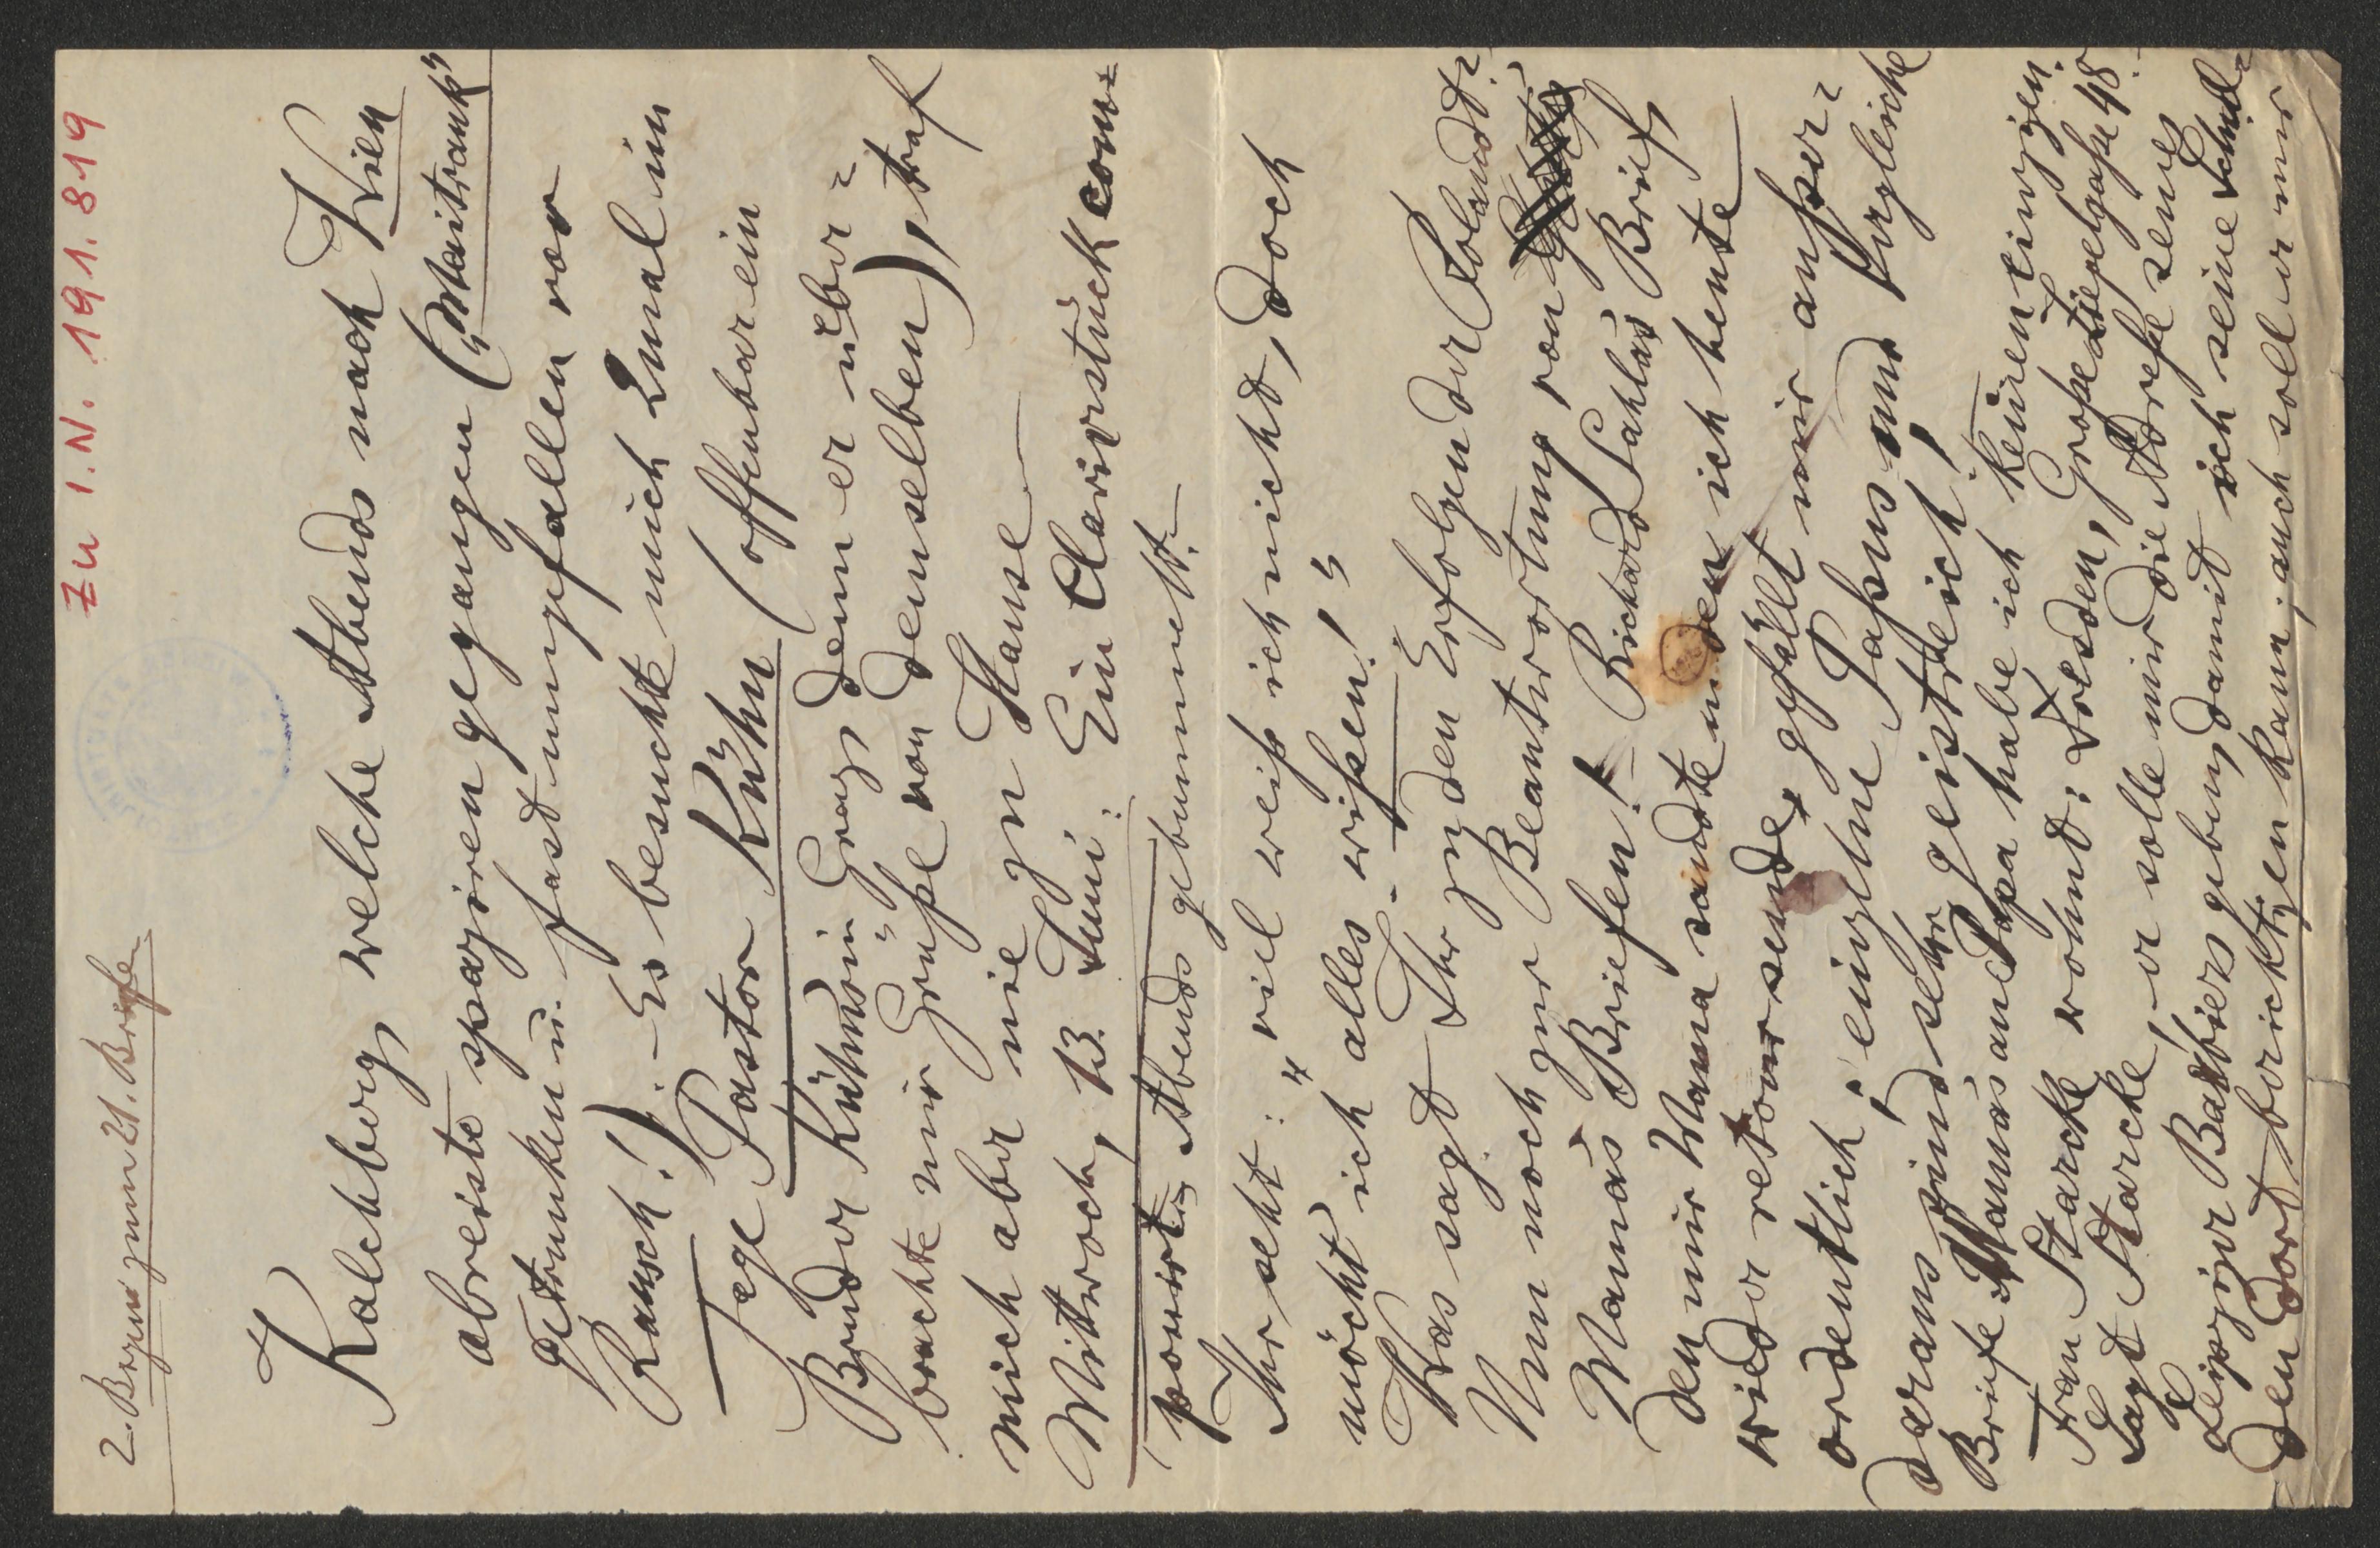 Zu I.N. 191.819
2. Bogen zum 21. Briefe
Kalchberg, welche Abends nach Wien
abreiste spaziren gegangen („Maitrank"
getrunken u. fast umgefallen vor
Rausch!) .– Es besuchte mich 2mal im
Pastor Kühn (offenbar ein
Bruder Kühnsin Graz, denn er über=
brachte mir Grüße von demselben), traf
mich aber nie zu Hause.–
Mittwoch, 13. Juni: Ein Clavierstück com=
ponirt, Abends gebummelt.–
Ihr seht: „viel weiß ich nicht, doch
möcht' ich alles – wißen!"
Was sagt Ihr zu den Erfolgen der Rolandt?
Nun noch zur Beantwortung von
Mama's Briefen! – Richard Sahla's Brief,
den mir Mama sandte u. den ich heute
wieder retour sende, gefällt mir außer=
ordentlich; einzelne Passus und Vergleiche
daraus sind sehr geistreich!
Briefe Mama's an Papa habe ich keinen einzigen.
Frau Starcke wohnt: Dresden, Große Ziegelgaße 48.–
Sagt Starcke, er solle mir die Adresse seines
Leipziger Barbiers geben, damit ich seine Schul=
den dort berichtigen kann; auch soll er mir